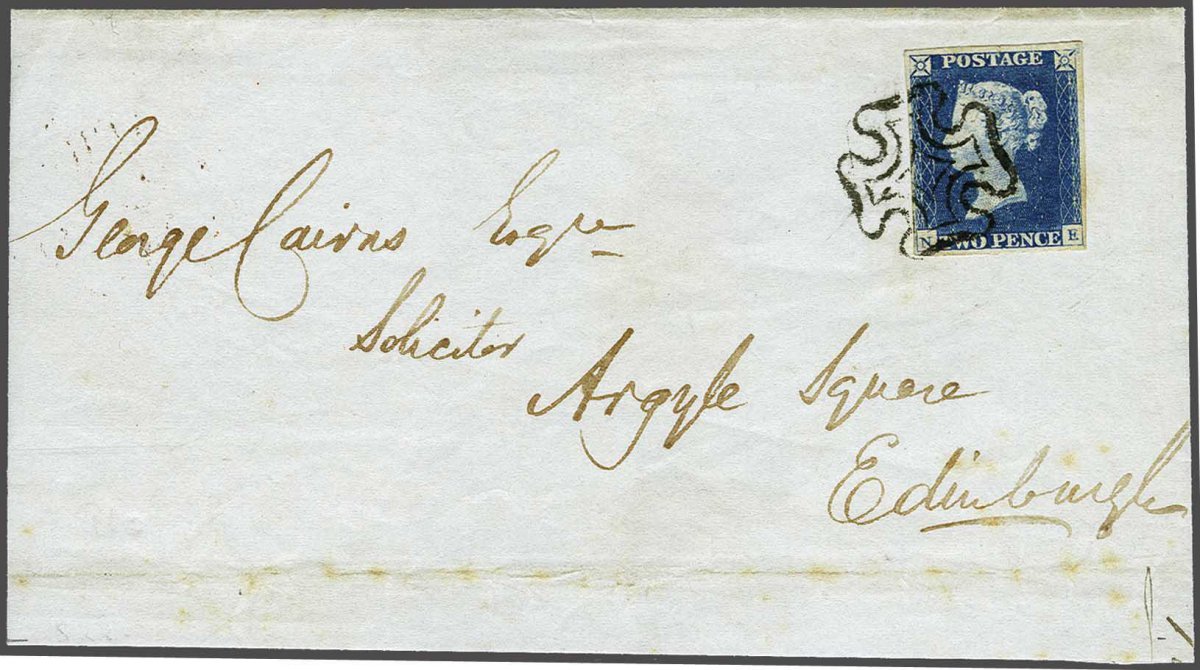 POSTAGE
N TWO PENCE E
George Cairns Esqre
Solicitor
Argyle Square
Edinburgh